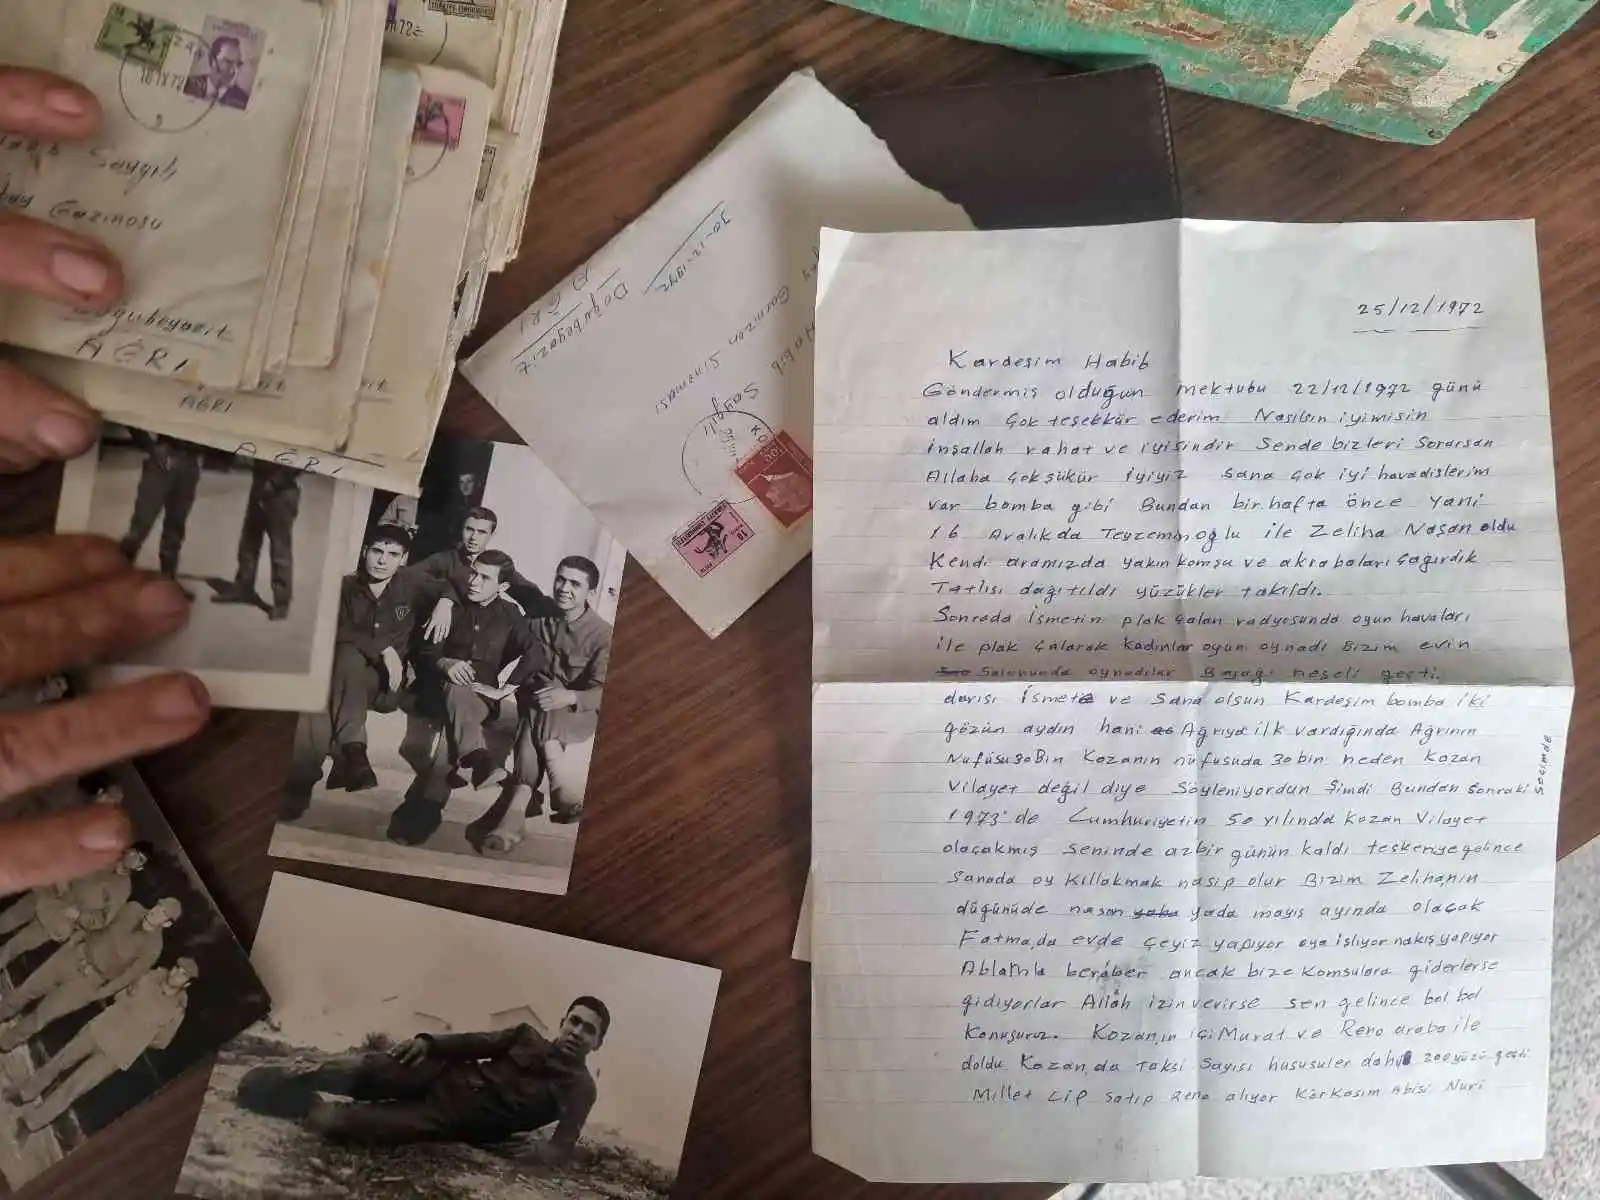 Saygılı
Gazinosu
Doğubeyazit
AĞRI
AĞRI
AĞRI
30-12-1972
Habib Saygılı
Garnizon Sineması
Doğubeyazit
AĞRI
25/12/1972
Kardeşim Habib
Göndermiş olduğun mektubu 22/12/1972 günü
aldım Çok teşekkür ederim Nasılsın iyimisin
inşallah rahat ve iyisindir Sende bizleri Sorarsan
Allaha Çok şükür iyiyiz Sana Çok iyi havadislerim
var bomba gibi Bundan bir hafta önce yani
16 Aralıkda Teyzemınoğlu ile Zeliha Naşan oldu
Kendi aramızda yakın komşu ve akrabaları Çağırdık
Tatlısı dağıtıldı yüzükler takıldı.
Sonrada ismetin plak Çalan radyosunda oyun havaları
ile plak Çalarak kadınlar oyun oynadı Bizim evin
Salonunda oynadılar Bayağı neşeli geçti.
darısı ismete ve Sana olsun Kardeşim bomba iki
gözün aydın hani Ağrıya ilk vardığında Ağrının
Nufüsu 30Bin Kozanın nüfusuda 30 bin neden Kozan
Vilayet değil diye Söyleniyordun Şimdi Bundan Sonraki Seçimde
1973'de Cumhuriyetin 50 yılında Kozan Vilayet
olacakmış Seninde azbir günün kaldı teskeriye gelince
Sanada oy Kıllakmak nasip olur Bizim Zelihanın
düğünüde nasan yada mayıs ayında olacak
Fatma,da evde Çeyiz yapıyor oya işliyor nakış yapıyor
Ablamla beraber ancak bize Komşulara giderlerse
gidiyorlar Allah izin verirse sen gelince bol bol
Konuşuruz. Kozan,ın içi Murat ve Reno araba ile
doldu Kozan,da Taksi Sayısı hususuler dahil 200 yüzü geçti
Millet Cip Satıp Reno alıyor Körkasım Abisi Nuri